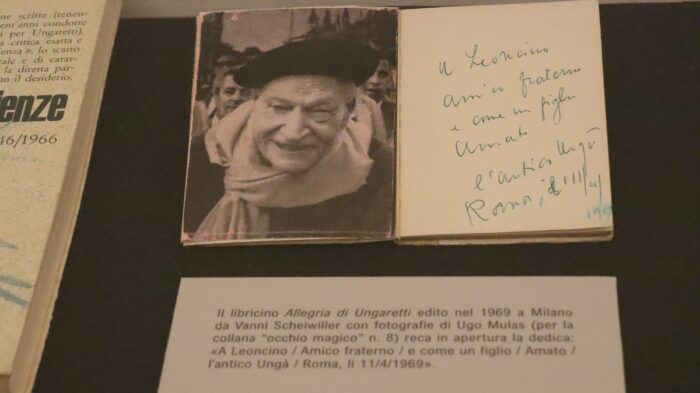 ne scritte (tenen-
ent'anni condotte
i per Ungaretti),
a critica esatta e
enza », lo scatto
ale e di carat-
la diretta pat-
on il desiderio.
ienze
46/1966
A Leoncino
amico fraterno
e come un figlio
Amato
l'antico Ungà
Roma, il 11/4/
1969
Il libricino Allegria di Ungaretti edito nel 1969 a Milano
da Vanni Scheiwiller con fotografie di Ugo Mulas (per la
collana "occhio magico" n. 8) reca in apertura la dedica:
«A Leoncino / Amico fraterno / e come un figlio / Amato /
l'antico Ungà / Roma, li 11/4/1969».